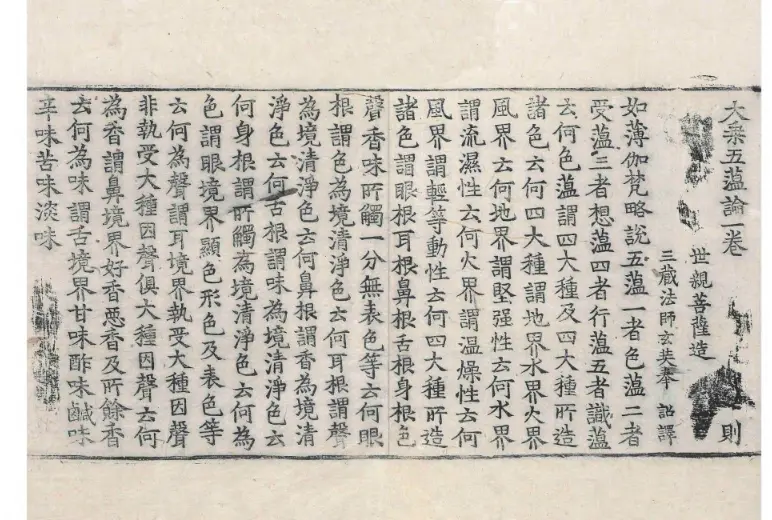 大乗五蕰論一卷 則
世親菩薩造
三藏法師玄奘奉 詔譯
如薄伽梵略說五蕰一者色蕰二者
受蕰三者想蕰四者行蕰五者識蕰
云何色蕰謂四大種及四大種所造
諸色云何四大種謂地界水界火界
風界云何地界謂堅强性云何水界
謂流濕性云何火界謂温燥性云何
風界謂輕等動性云何四大種所造
諸色謂眼根耳根鼻根舌根身根色
聲香味所觸一分無表色等云何眼
根謂色為境清淨色云何耳根謂聲
為境清淨色云何鼻根謂香為境清
淨色云何舌根謂味為境清淨色云
何身根謂所觸為境清淨色云何為
色謂眼境界顯色形色及表色等
云何為聲謂耳境界執受大種因聲
非執受大種因聲俱大種因聲云何
為香謂鼻境界好香悪香及所餘香
云何為味謂舌境界甘味酢味鹹味
辛味苦味淡味